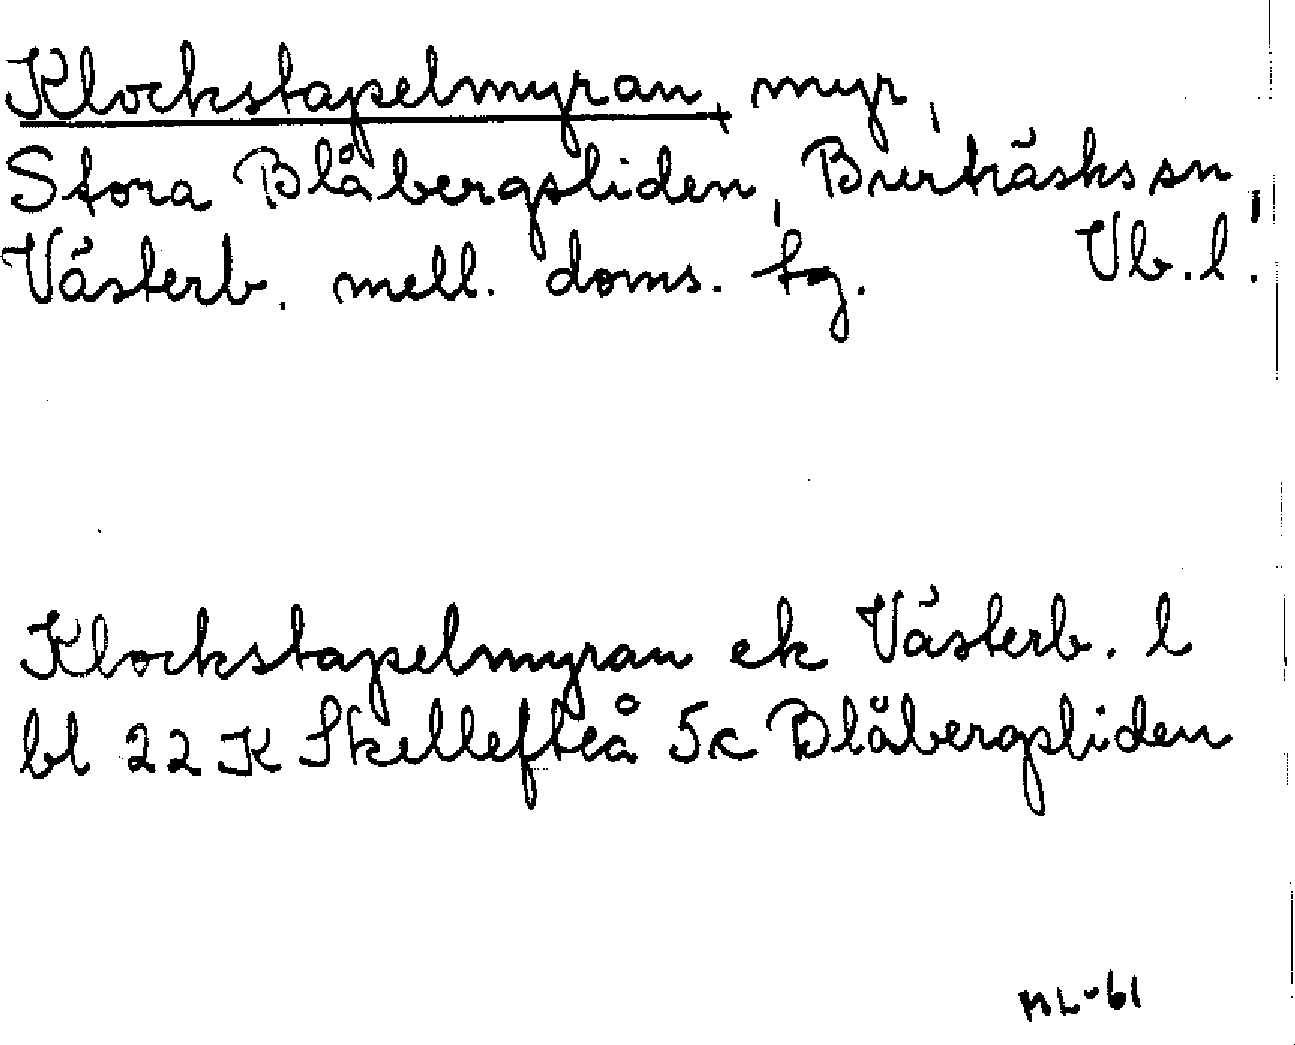 Klockstapelmyran, myr,
Stora Blåbergsliden, Burträsks sn,
Västerb. mell. doms. tg. Vb.l.
Klockstapelmyran ek Västerb. l
bl 22 K Skellefteå 5c Blåbergsliden
ML-61